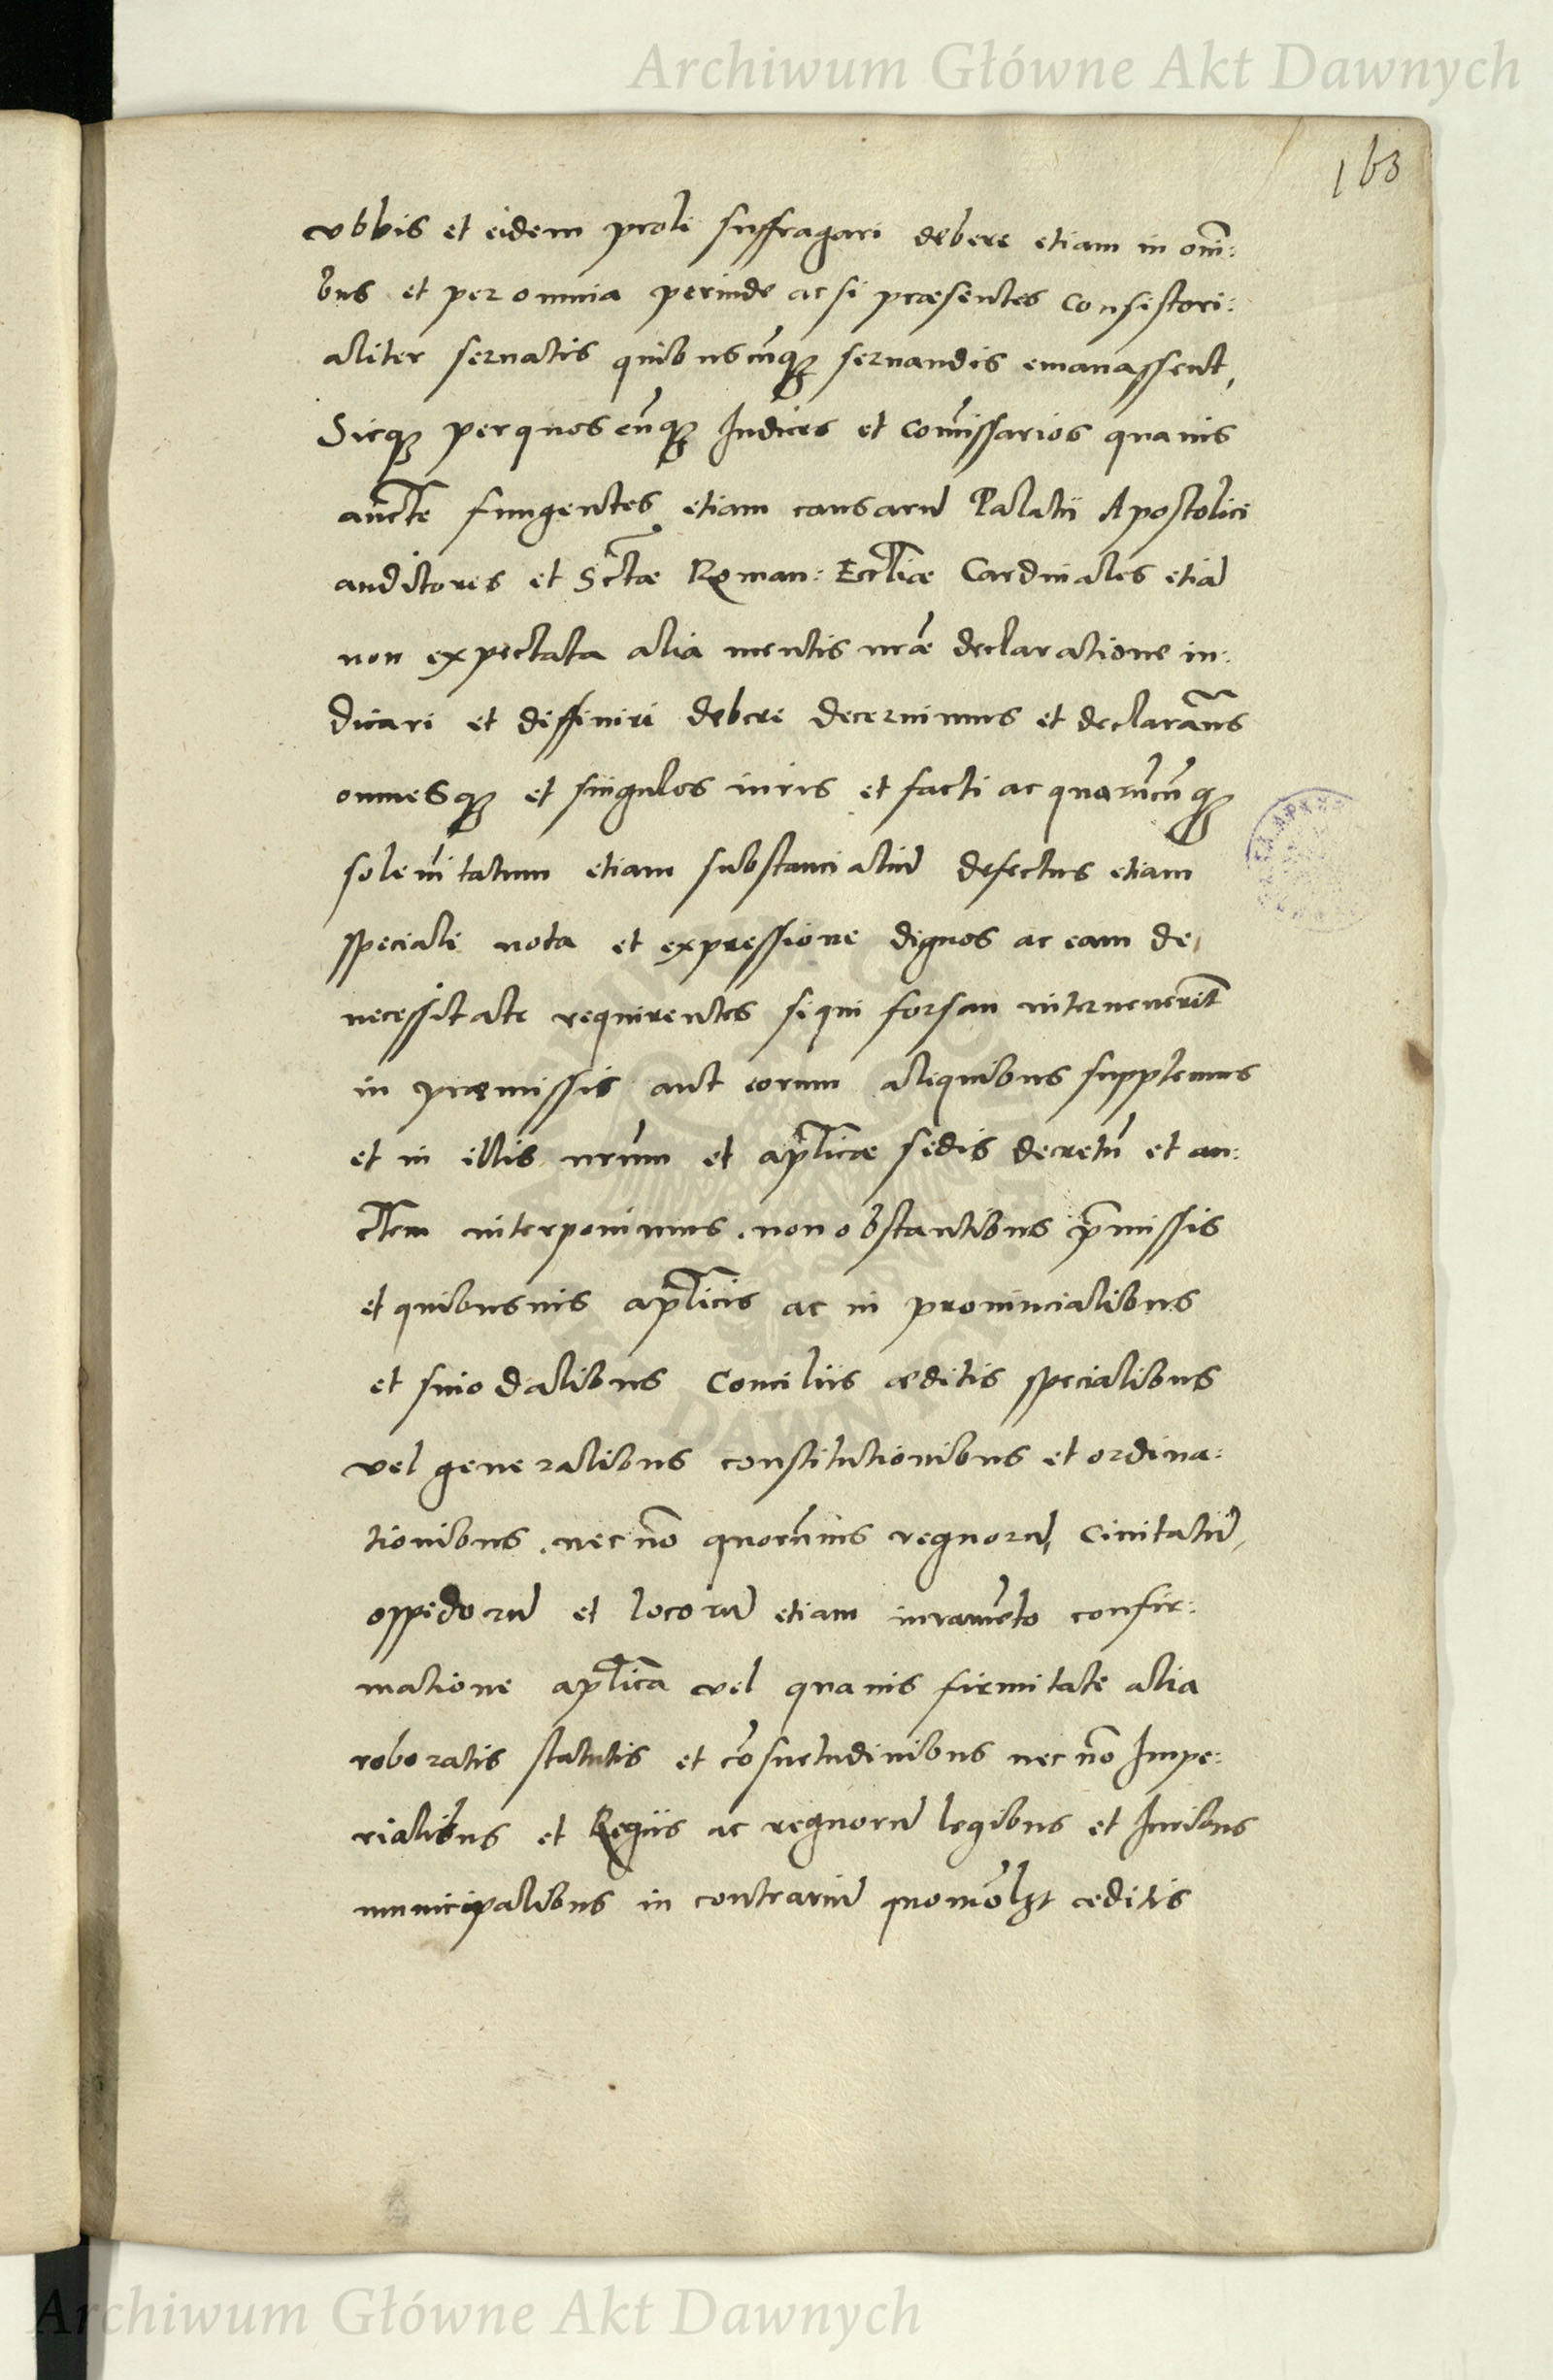 Archiwum Główne Akt Dawnych
163
vobis et eidem proli suffragari debere etiam in om̃i:
bus et per omnia perinde ac si præsentes consistori:
aliter seruatis quibuscũq; seruandis emanassent,
Sicq; per quoscũq; Iudices et Com̃issarios quauis
auc̃te fungentes etiam causarũ Palatii Apostolici
auditores et Sc̃tæ Roman: Eccl̃iæ Cardinales etiã
non expectata alia mentis nr̃æ declaratione iu:
dicari et diffiniri debere decernimus et declarãus
omnesq; et singulos iuris et facti ac quarũcũq;
solem̃itatum etiam substantialiũ defectus etiam
speciali nota et expressione dignos ac eam de
necessitate requirentes si qui forsan interuenerĩt
in præmissis aut eorum aliquibus supplemus
et in illis nr̃um et apl̃icæ sedis decretũ et au:
c̃tem interponimus . non obstantibus p̃missis
et quibusuis apl̃icis ac in prouincialibus
et sinodalibus Conciliis æditis specialibus
vel generalibus constitutionibus et ordina:
tionibus . nec nõ quorũuis regnorũ, Ciuitatũ,
oppidorũ et locorũ etiam iuramẽto confir:
matione apl̃ica vel quauis firmitate alia
roboratis statutis et cõsuetudinibus nec nõ Impe:
rialibus et Regiis ac regnorũ legibus et Iuribus
municipalibus in contrariũ quomõlẓt æditis
Archiwum Główne Akt Dawnych